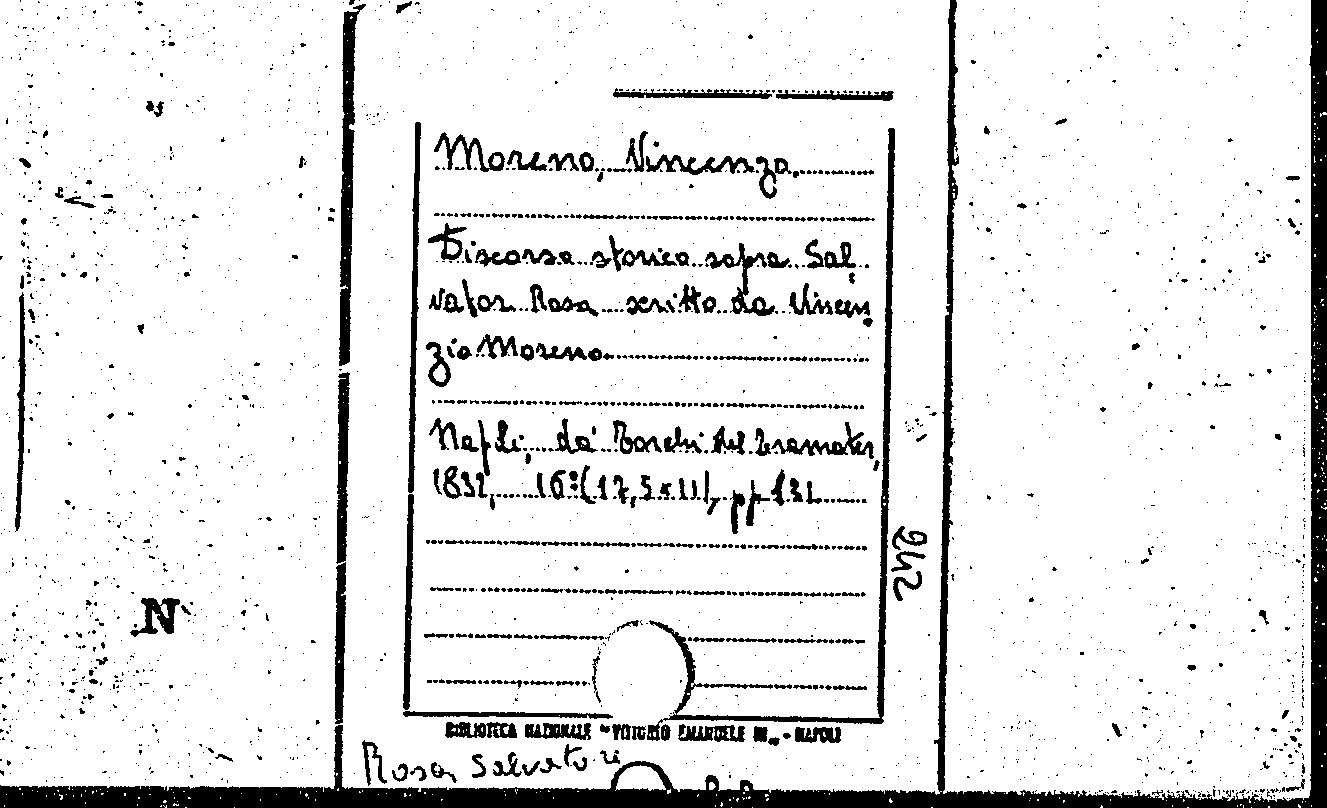 Moreno, Vincenzo.
Discorso storico sopra Sal,
vator Rosa scritto da Vincen,
zio Moreno.
Napoli, da' Torchi del Tramater,
1832, 16º (17,5 x 11), pp 131
242
N
BIBLIOTECA NAZIONALE "VITTORIO EMANUELE III" - NAPOLI
Rosa, Salvatore